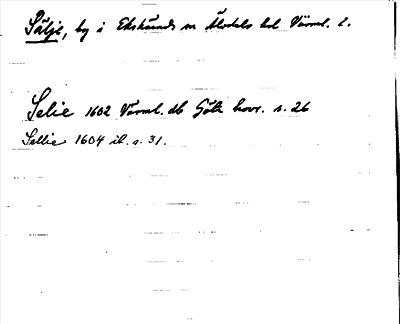 Sälje, by i Ekshärads sn Älvdals hd Värml. l.
Selie 1602 Värml. db Göta hovr. s. 26
Sellie 1604 ib. s. 31.